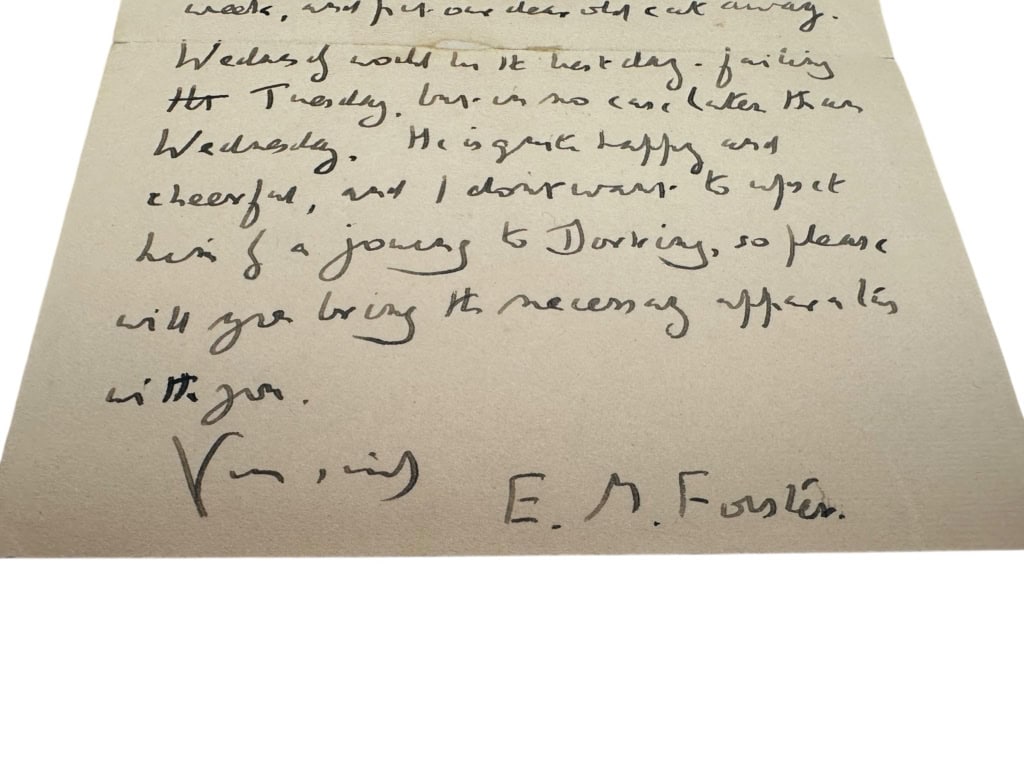 week, and put our dear old cat away.
Wednesday would be the best day - failing
tht Tuesday, but in no case later than
Wednesday. He is quite happy and
cheerful, and I dont want to upset
him by a journey to Dorking, so please
will you bring the necessary apparatus
with you.
Yours sincerely
E. M. Forster.